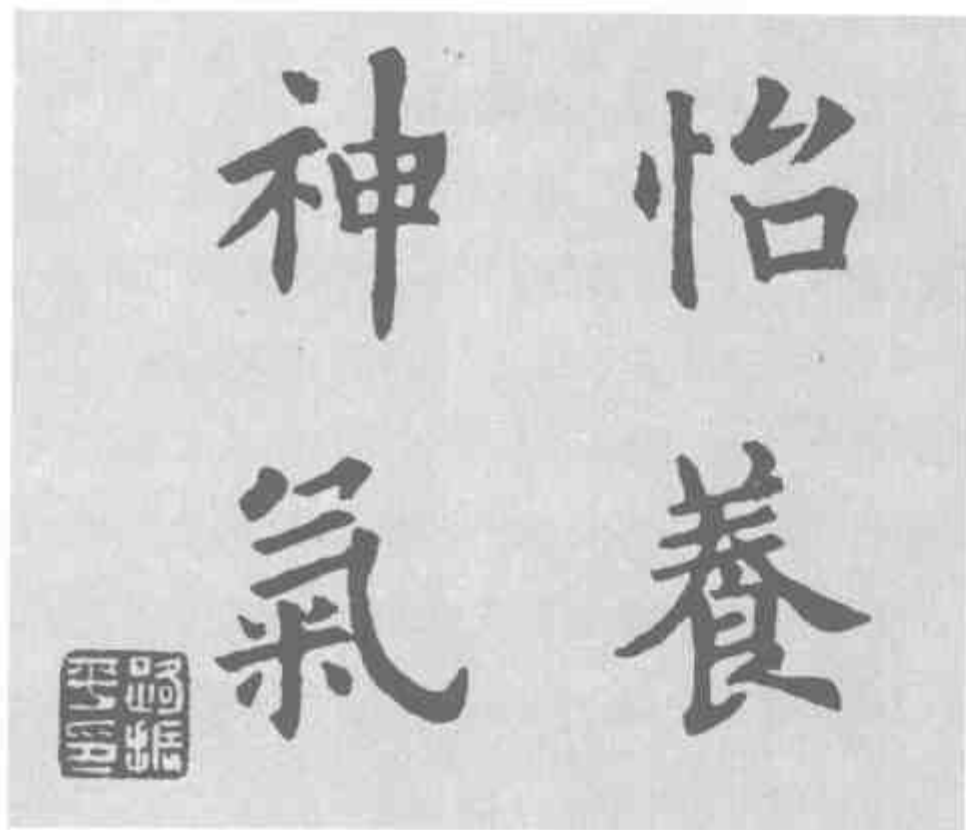 怡養
神氣